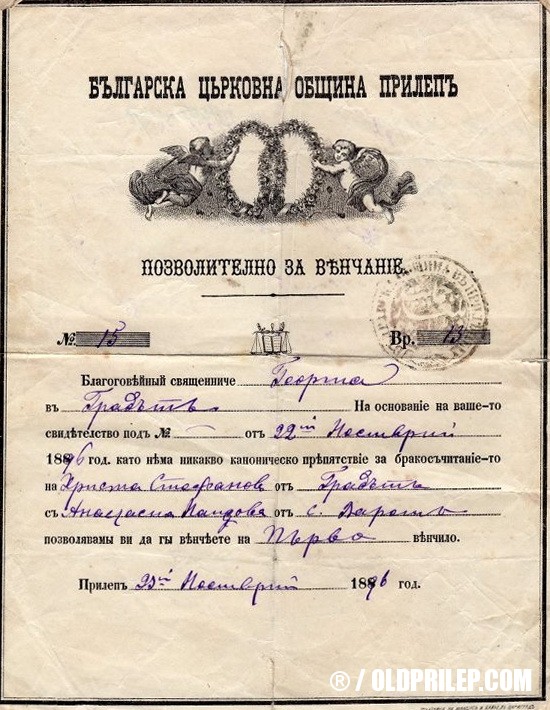 БЪЛГАРСКА ЦЪРКОВНА ОБЩИНА ПРИЛЕПЪ
ПОЗВОЛИТЕЛНО ЗА ВѢНЧАНІЕ.
№. 15 Вр. 13
Благоговѣйный священниче Георгиа
въ Градътъ На основание на ваше-то
свидѣтелство подъ № — отъ 22ий Ноемврий
1896 год. като нѣма никакво каноническо прѣпятствіе за бракосъчитаніе-то
на Христа Стефановъ отъ Градътъ
съ Анастасиа отъ с. Варошъ
позволявамы ви да гы вѣнчѣете на Първо вѣнчило.
Прилепъ Ноемврий 1896 год.
® / OLDPRILEP.COM